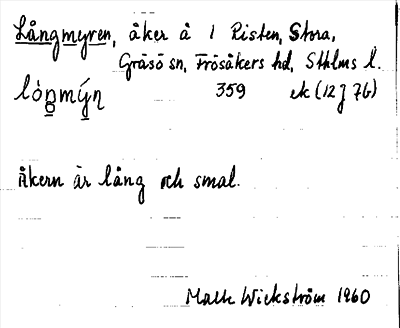 Långmyren, åker å 1 Risten, Stora,
Gräsö sn, Frösåkers hd, Sthlms l.
lòŋmýn 359 ek (12J 7b)
Åkern är lång och smal.
Wickström 1960